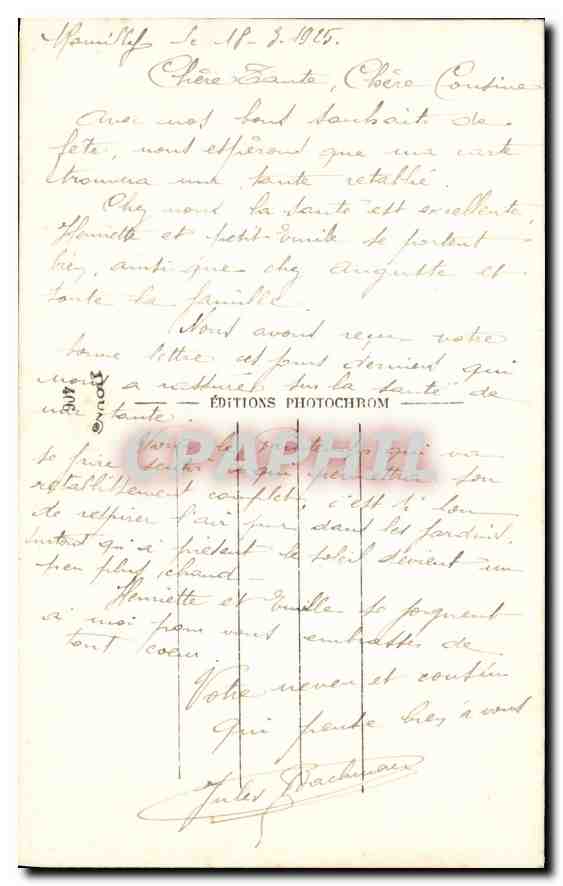 le 18-3-1925.
Chère Tante, Chère Cousine
Avec nos bons souhaits de
fête, nous espérons que ma carte
trouvera ma tante rétablie.
Chez nous la santé est excellente,
Henriette et petit Emile se portent
bien, ainsi que chez Auguste et
toute la famille.
Nous avons reçu votre
bonne lettre ces jours derniers qui
nous a rassurés sur la santé de
ma tante.
ÉDITIONS PHOTOCHROM
406
CPAPHIL
Voici le printemps qui va
se faire sentir qui permettra son
rétablissement complet, c'est si bon
de respirer l'air pur dans les jardins.
surtout qu'à présent le soleil devient un
peu plus chaud -
Henriette et Emile se joignent
à moi pour vous embrasser de
tout coeur.
Votre neveu et cousin
qui pense bien à vous
Jules Bachmann